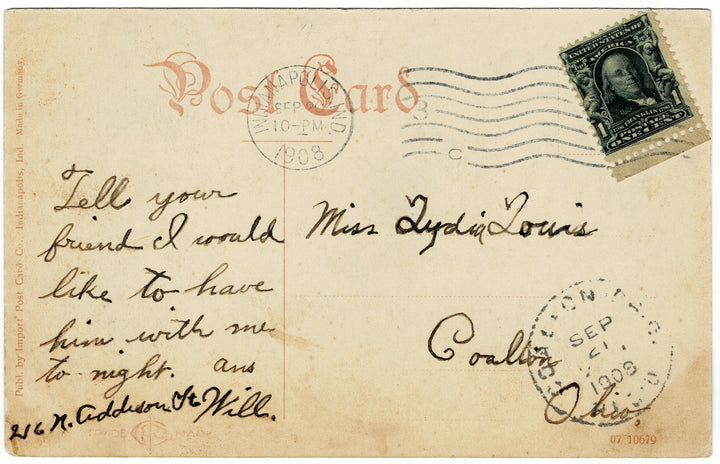 Post Card
INDIANAPOLIS, IND.
SEP 20
10-PM
1908
3
C
UNITED STATES OF
AMERICA
1
1
FRANKLIN
POSTAGE
ONE CENT
Publ. by Import' Post Card Co., Indianapolis, Ind. Made in Germany.
Tell your
friend I would
like to have
him with me
to-night. ans
Will.
216 N. Addison St
Miss Lydia Louis
Coalton
Ohio,
COALTON
SEP
21
1908
TRADE MARK
07 10679